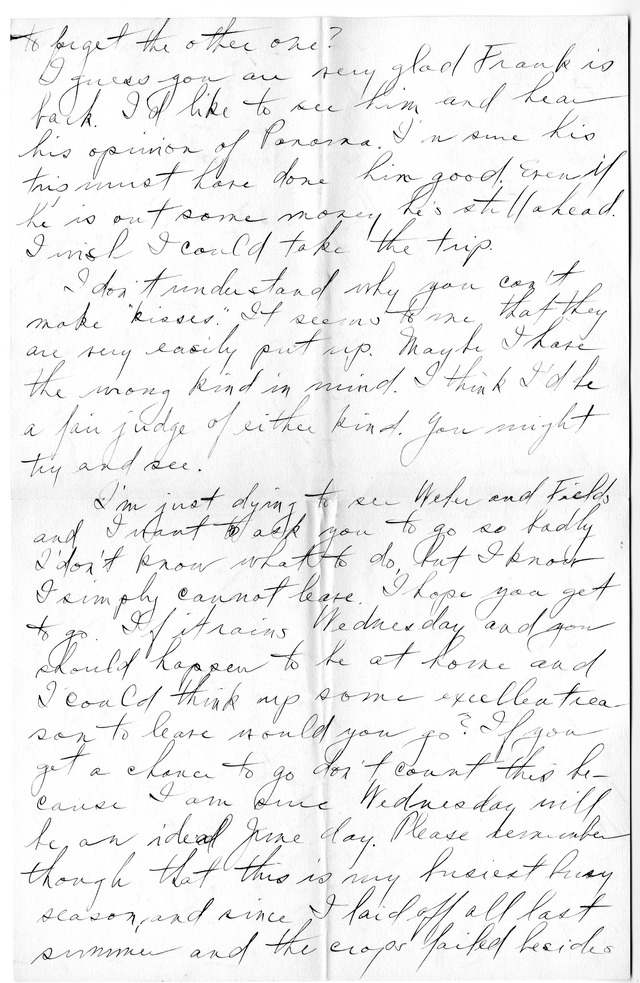 to forget the other one?
I guess you are very glad Frank is
back. I'd like to see him and hear
his opinion of Panama. I'm sure his
trip must have done him good. Even if
he is out some money he's still ahead.
I wish I could take the trip.
I don't understand why you can't
make "kisses." It seems to me that they
are very easily put up. Maybe I have
the wrong kind in mind. I think I'd be
a fair judge of either kind. You might
try and see.
I'm just dying to see Weber and Fields
and I want to ask you to go so badly
I don't know what to do, but I know
I simply cannot leave. I hope you get
to go. If it rains Wednesday and you
should happen to be at home and
I could think up some excellent rea-
son to leave would you go? If you
get a chance to go don't count this be-
cause I am sure Wednesday will
be an ideal June day. Please remember
though that this is my busiest busy
season, and since I laid off all last
summer and the crops failed besides